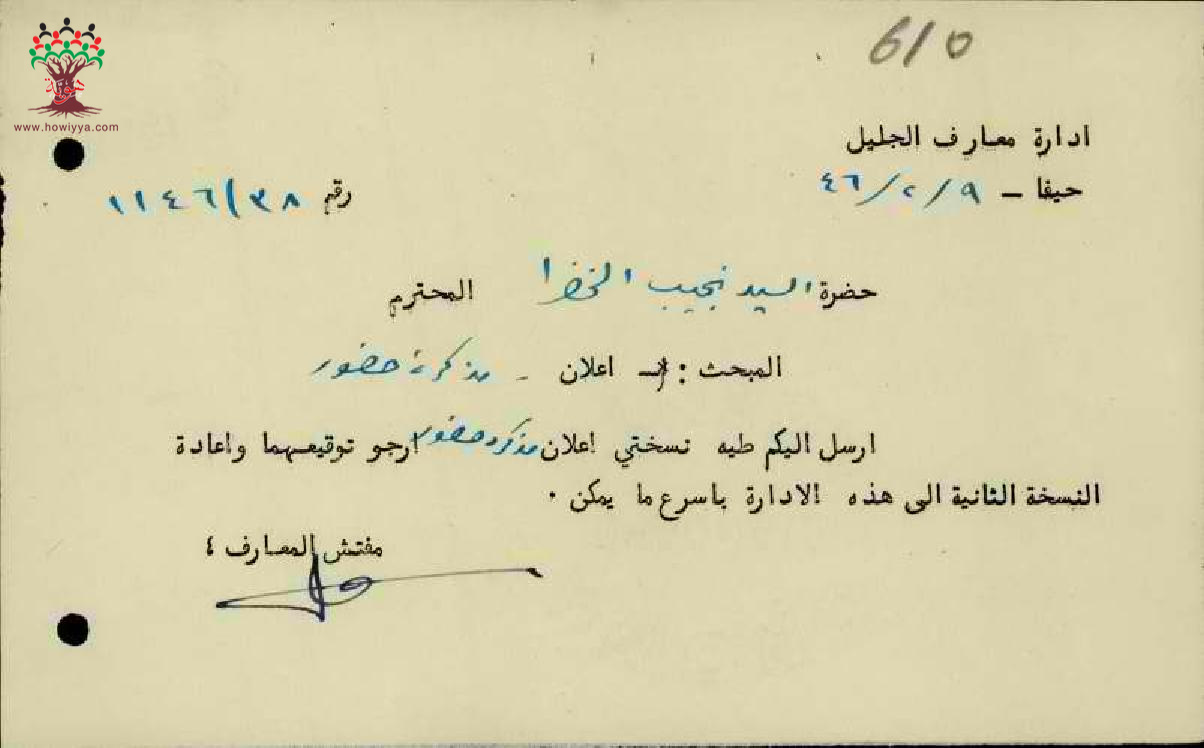 6/0
هوية
www.howiyya.com
ادارة معارف الجليل
حيفا – ٤٦/٢/٩
رقم ١١٤٦/٣٨
حضرة السيد نجيب الخضرا المحترم
المبحث : – اعلان – مذكرة حضور
ارسل اليكم طيه نسختي اعلان مذكرة حضور ارجو توقيعهما واعادة
النسخة الثانية الى هذه الادارة باسرع ما يمكن ٠
مفتش المعارف ٤